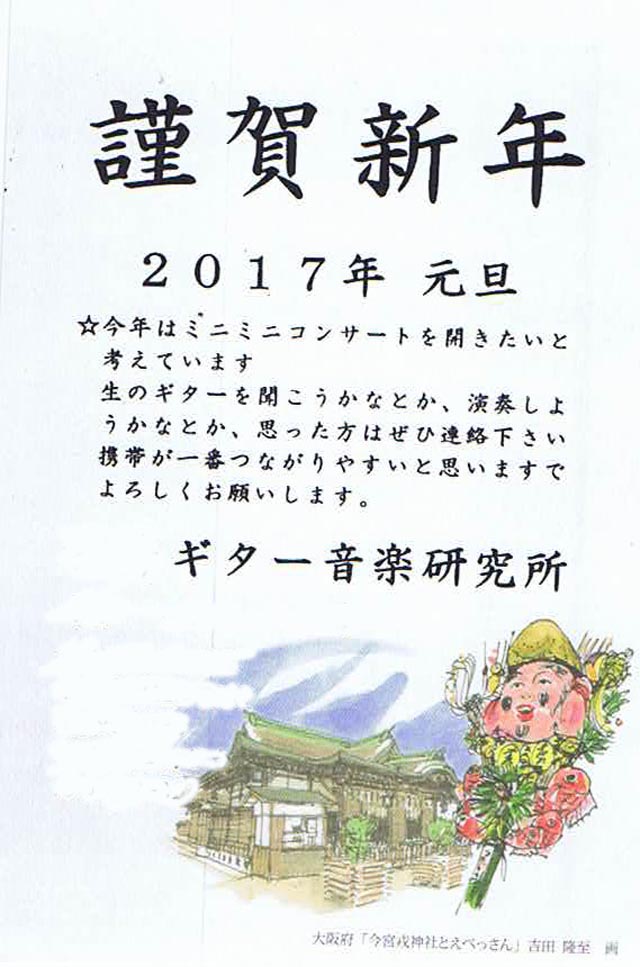 謹賀新年
2017年 元旦
☆今年はミニミニコンサートを開きたいと
考えています
生のギターを聞こうかなとか、演奏しよ
うかなとか、思った方はぜひ連絡下さい
携帯が一番つながりやすいと思いますで
よろしくお願いします。
ギター音楽研究所
大阪府「今宮戎神社とえべっさん」吉田 隆至 画